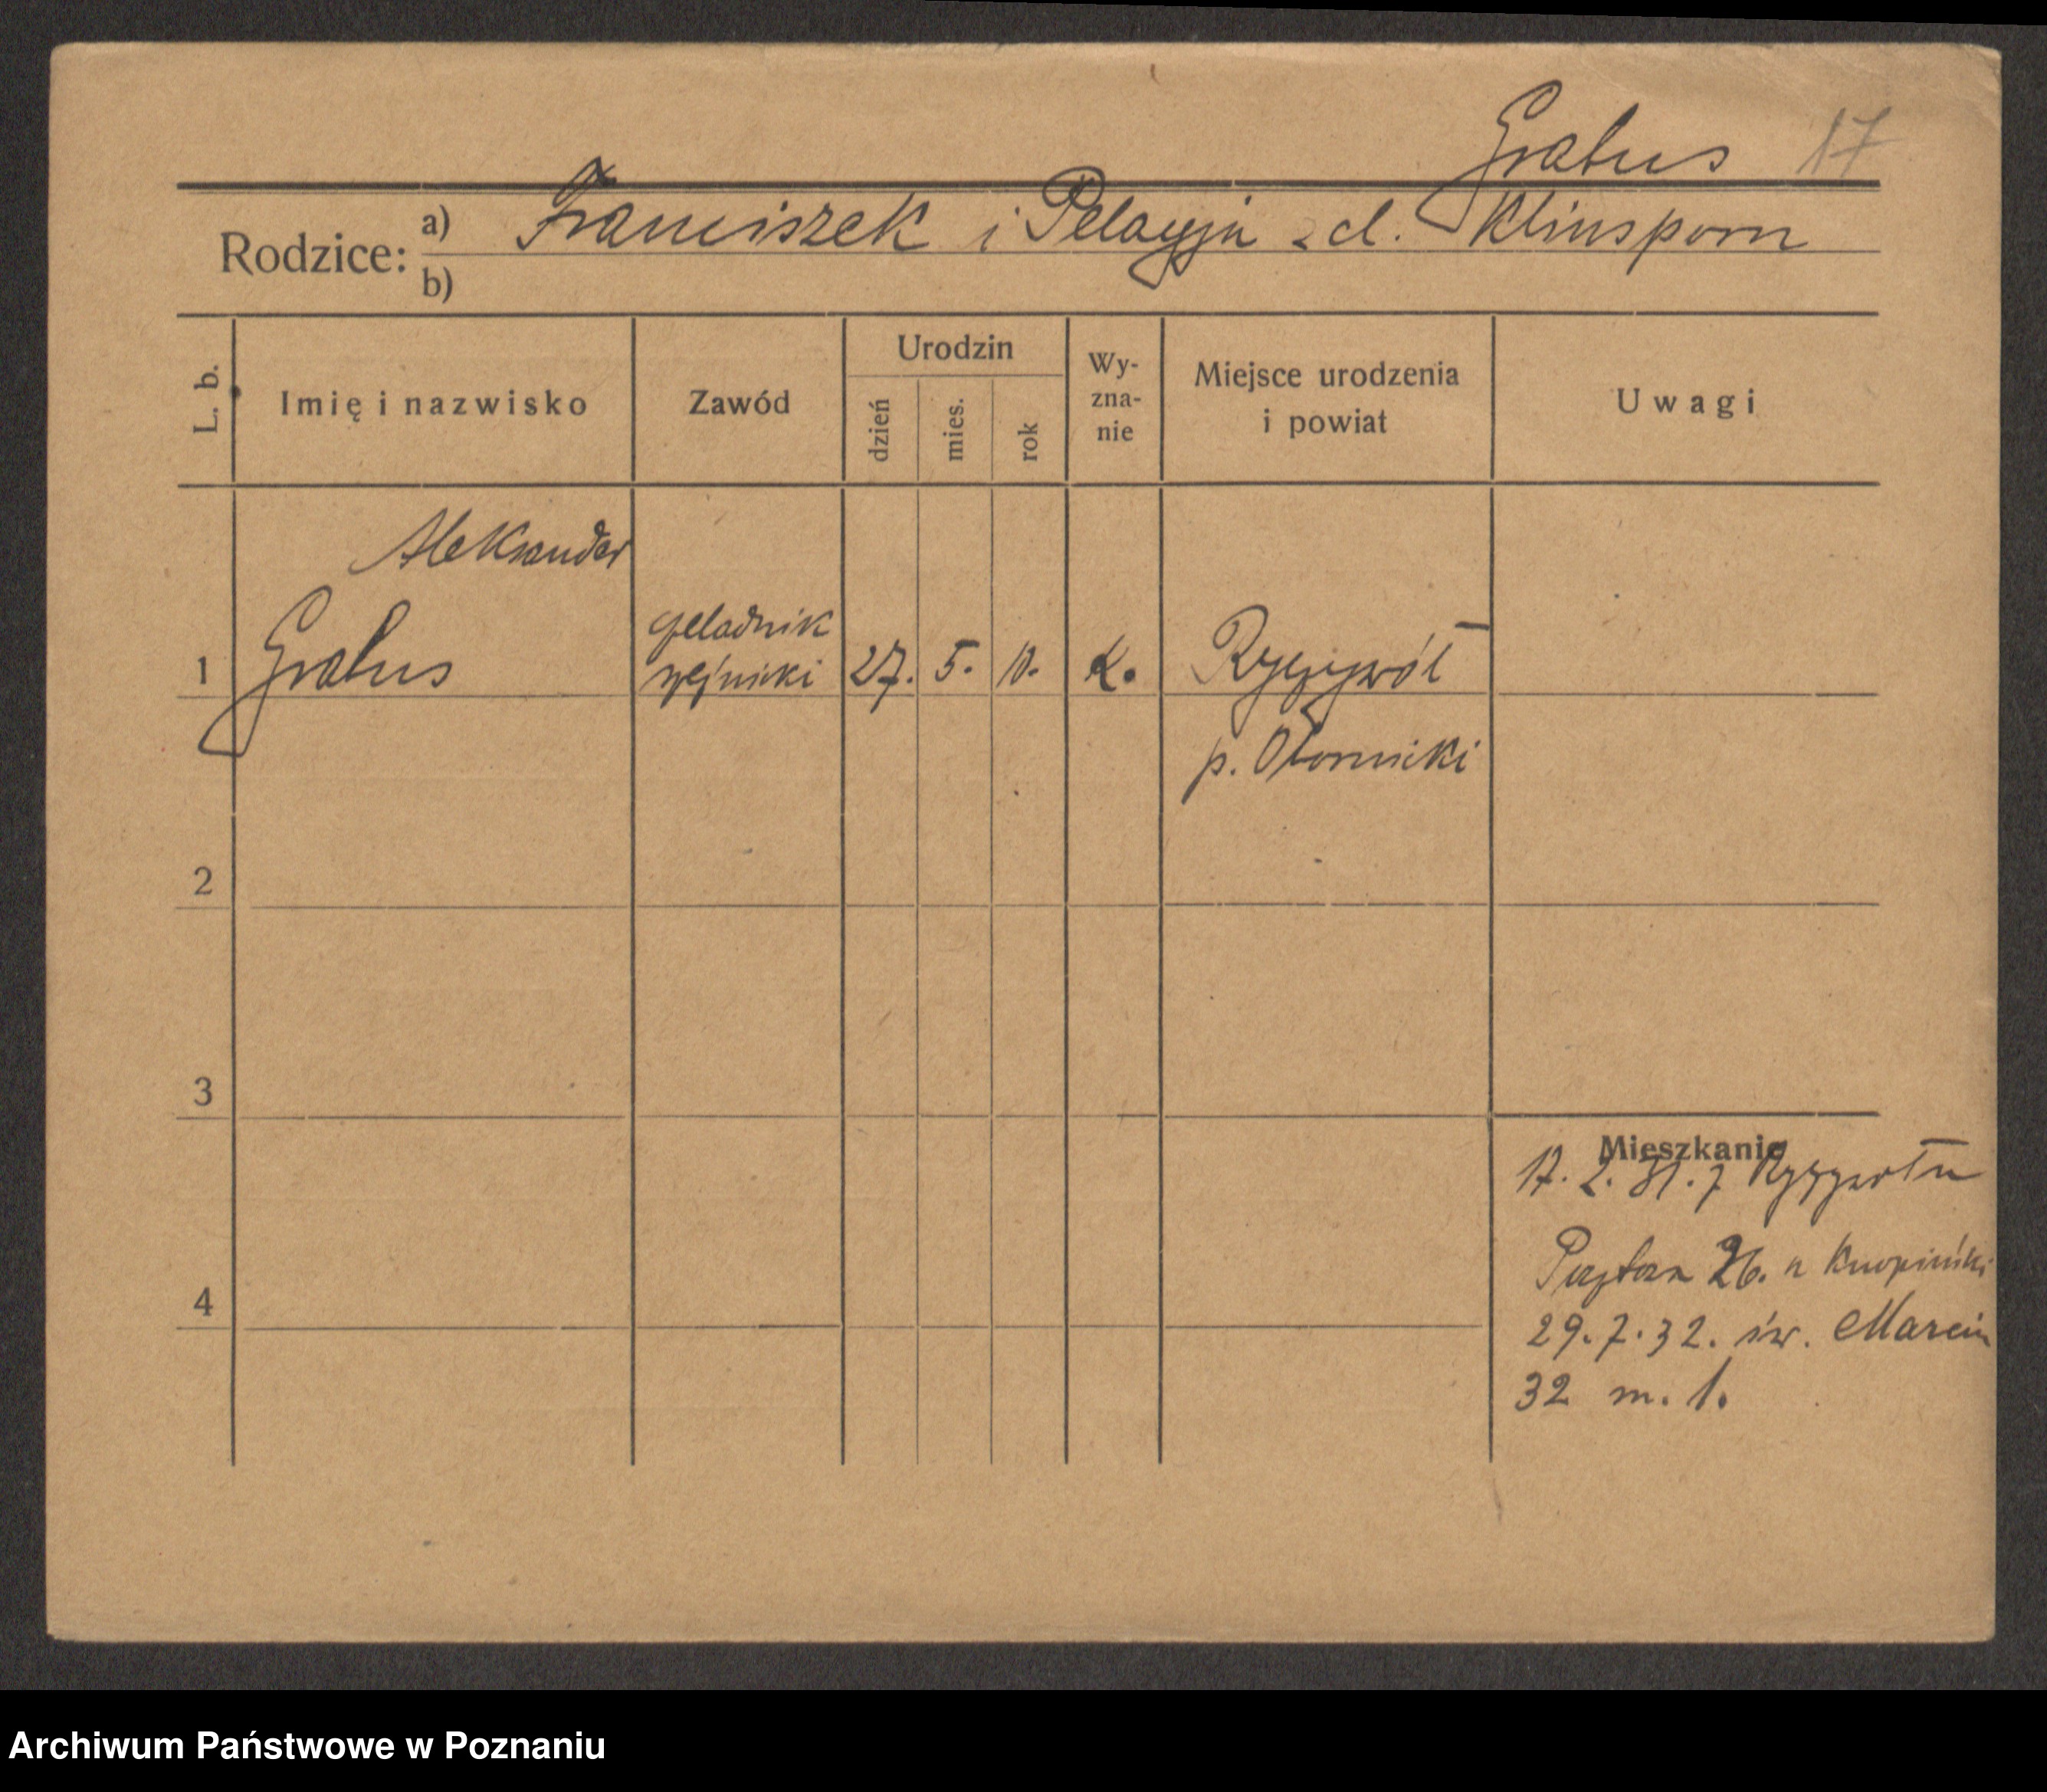 Grabus 17
Rodzice: a) Franciszek i Pelagja z d. Klinsporn
b)
L. b. Imię i nazwisko Zawód Urodzin dzień mies. rok Wy-zna-nie Miejsce urodzenia i powiat Uwagi
Aleksander
1 Grabus czeladnik rzeźnicki 27. 5. 10. k. Ryczywół
p. Oborniki
2
3
Mieszkanie
17. 2. 31. z Ryczywołu
4 26. u
29.7.32. św. Marcin
32 m. 1.
Archiwum Państwowe w Poznaniu